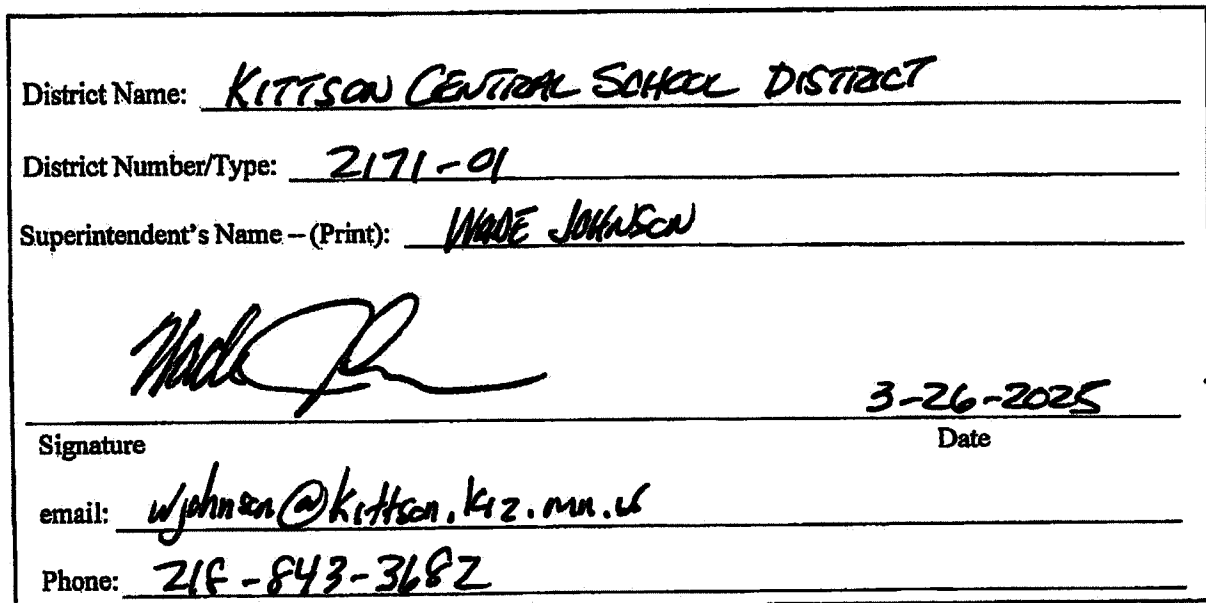 District Name: KITTSON CENTRAL SCHOOL DISTRICT
District Number/Type: 2171-01
Superintendent's Name – (Print): WADE JOHNSON
Wade J
3-26-2025
Signature Date
email: wjohnson@kittson.k12.mn.us
Phone: 218-843-3682